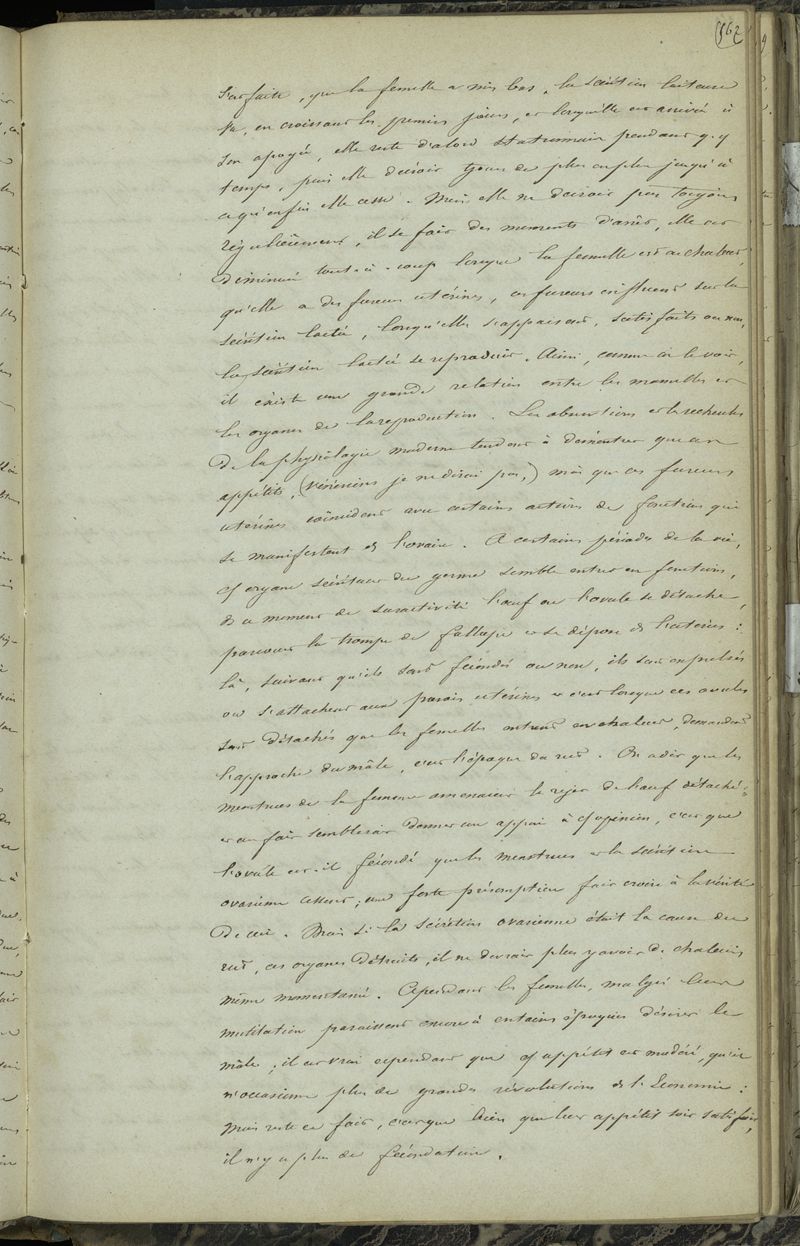 562
s'est faite, que la femelle a mis bas, la sécrétion laiteuse
va, en croissant les premiers jours, et lorsqu'elle est arrivée à
son apogée, elle reste d'abord stationnaire pendant q.q
temps, puis elle décroit tjours de plus en plus jusqu'à
ce qu'enfin elle cesse. Mais elle ne décroit pas toujours
régulièrement, il se fait des moments d'arrêt, elle est
diminuée tout-à-coup lorsque la femelle est en chaleur,
qu'elle a des fureurs utérines, ces fureurs influent sur la
sécrétion lactée, lorsqu'elles s'appaisent, satisfaits ou non,
la sécrétion lactée se reproduit. Ainsi, comme on le voit,
il existe une grande relation entre les mamelles et
les organes de la reproduction. Les observations et les recherches
de la physiologie moderne tendent à démontrer que ces
appétits, (vénériens je ne dirai pas,) mais que ces fureurs
utérines coïncident avec certains actions de fonction qui
se manifestent ds l'ovaire. A certaines périodes de la vie,
cet organe sécréteur du germe semble entrer en fonctions,
ds ce moment de suractivité l'oeuf ou l'ovule se détache,
parcourt la trompe de fallope et se dépose ds l'utérus:
là, suivant qu'ils sont fécondés ou non, ils sont expulsés
ou s'attachent aux parois utérines et c'est lorsque ces ovules
sont détachés que les femelles entrent en chaleur, demandent
l'approche du mâle, c'est l'époque du rut. On a dit que les
menstrues de la femme amenaient le rejet de l'oeuf détaché;
et un fait semblerait donner un appui à cet opinion, c'est que
l'ovule est-il fécondé que les menstrues et la sécrétion
ovarienne cessent; une forte présomption fait croire à la vérité
de ceci. Mais si la sécrétion ovarienne était la cause du
rut, ces organes détruits, il ne devrait plus y avoir de chaleurs
même momentané. Cependant les femelles, malgré leur
mutilation paraissent encore à certaines époques désirer le
mâle; il est vrai cependant que cet appétit est modéré, qu'il
n'occasionne plus de grandes révolutions ds l'Economie:
mais reste ce fait, c'est que bien que leur appétit soit satisfait,
il n'y a plus de fécondation.